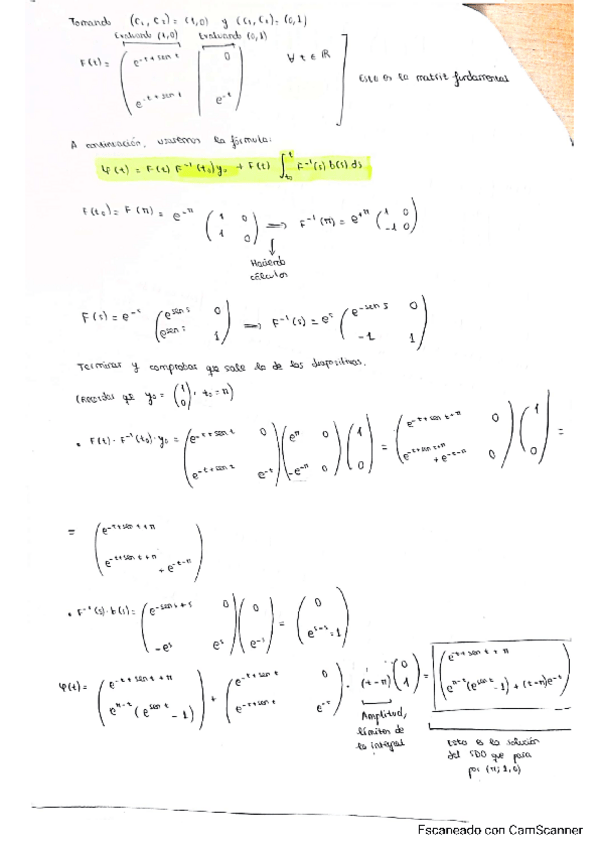 Tomando (C₁, C₂) = (1,0) y (C₁, C₂) = (0,1)
Evaluando (1,0) Evaluando (0,1)
F(t) = ( e^{-t+sen t} 0 ; e^{-t+sen t} e^{-t} ) ∀ t ∈ ℝ Esto es la matriz fundamental
A continuación, usaremos la fórmula:
φ(t) = F(t) F⁻¹(t₀) y₀ + F(t) ∫_{t₀}^{t} F⁻¹(s) b(s) ds
F(t₀) = F(π) = e^{-π} ( 1 0 ; 1 0 ) ⟹ F⁻¹(π) = e^{+π} ( 1 0 ; -1 0 )
Haciendo
cálculos
F(s) = e^{-s} ( e^{sen s} 0 ; e^{sen s} 1 ) ⟹ F⁻¹(s) = e^{s} ( e^{-sen s} 0 ; -1 1 )
Terminar y comprobar que sale la de las diapositivas.
(Recordar que y₀ = ( 1 ; 0 ), t₀ = π)
• F(t) · F⁻¹(t₀) · y₀ = ( e^{-t+sen t} 0 ; e^{-t+sen t} e^{-t} ) ( e^{π} 0 ; -e^{-π} 0 ) ( 1 ; 0 ) = ( e^{-t+sen t+π} 0 ; e^{-t+sen t+π} + e^{-t-π} 0 ) ( 1 ; 0 ) =
= ( e^{-t+sen t+π} ; e^{-t+sen t+π} + e^{-t-π} )
• F⁻¹(s) · b(s) = ( e^{-sen s+s} 0 ; -e^{s} e^{s} ) ( 0 ; e^{-s} ) = ( 0 ; e^{s-s} = 1 )
φ(t) = ( e^{-t+sen t+π} ; e^{π-t}(e^{sen t} - 1) ) + ( e^{-t+sen t} 0 ; e^{-t+sen t} e^{-t} ) · (t-π) ( 0 ; 1 ) = ( e^{-t+sen t+π} ; e^{π-t}(e^{sen t} - 1) + (t-π)e^{-t} )
Amplitud,
límites de
la integral
Esto es la solución
del SDO que pasa
por (π, 1, 0)
Escaneado con CamScanner